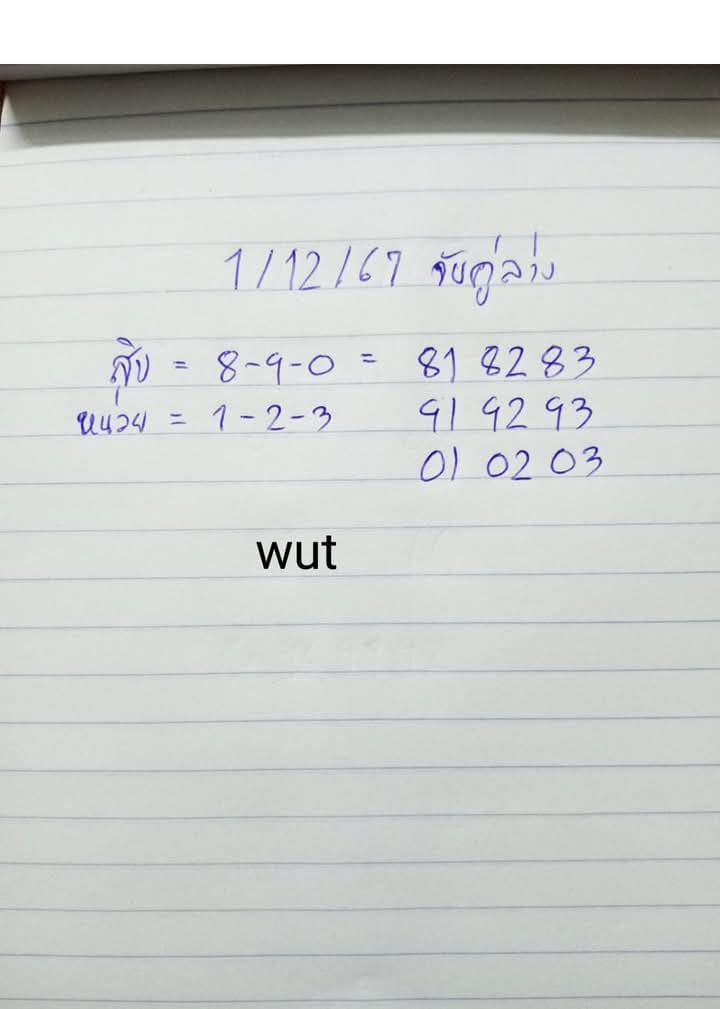 1/12/67 จับคู่ล่าง
สิบ = 8-9-0 = 81 82 83
หน่วย = 1-2-3 91 92 93
01 02 03
wut